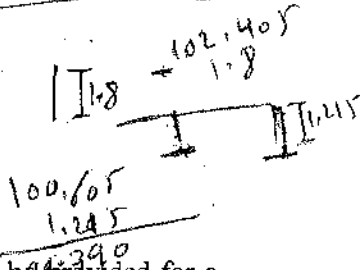 102.405
1.8
1.8
1.215
100.605
1.215
.390
provided for a